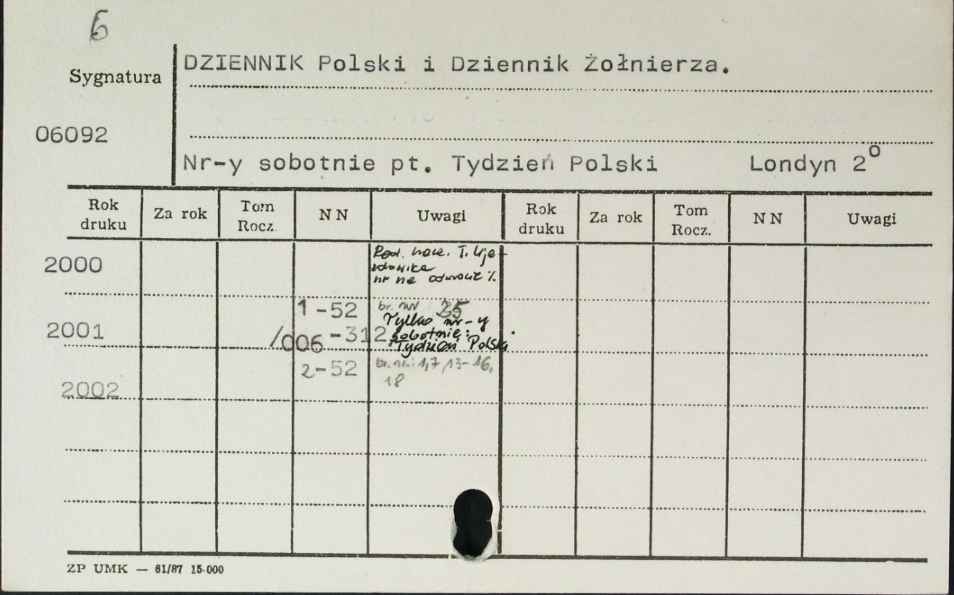 6
DZIENNIK Polski i Dziennik Żołnierza.
Sygnatura
06092
Nr-y sobotnie pt. Tydzień Polski Londyn 2°
Rok druku Za rok Tom Rocz. NN Uwagi Rok druku Za rok Tom Rocz. NN Uwagi
2000
nr na odwrocie %
1-52 br. nr 25
2001 /006-312 Tylko nr-y
sobotnie:
Tydzień Polski
2-52 br. nr: 1,7,13-16,
18
2002
ZP UMK — 61/87 15.000